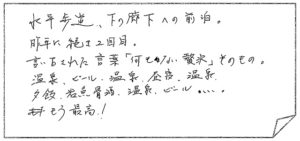 水平歩道、下の廊下への前泊。
昨年に続き2回目。
言い古された言葉「何もない贅沢」そのもの。
温泉、ビール、温泉、昼寝、温泉
夕飯、岩魚骨酒、温泉、ビール・・・・。
もう最高！